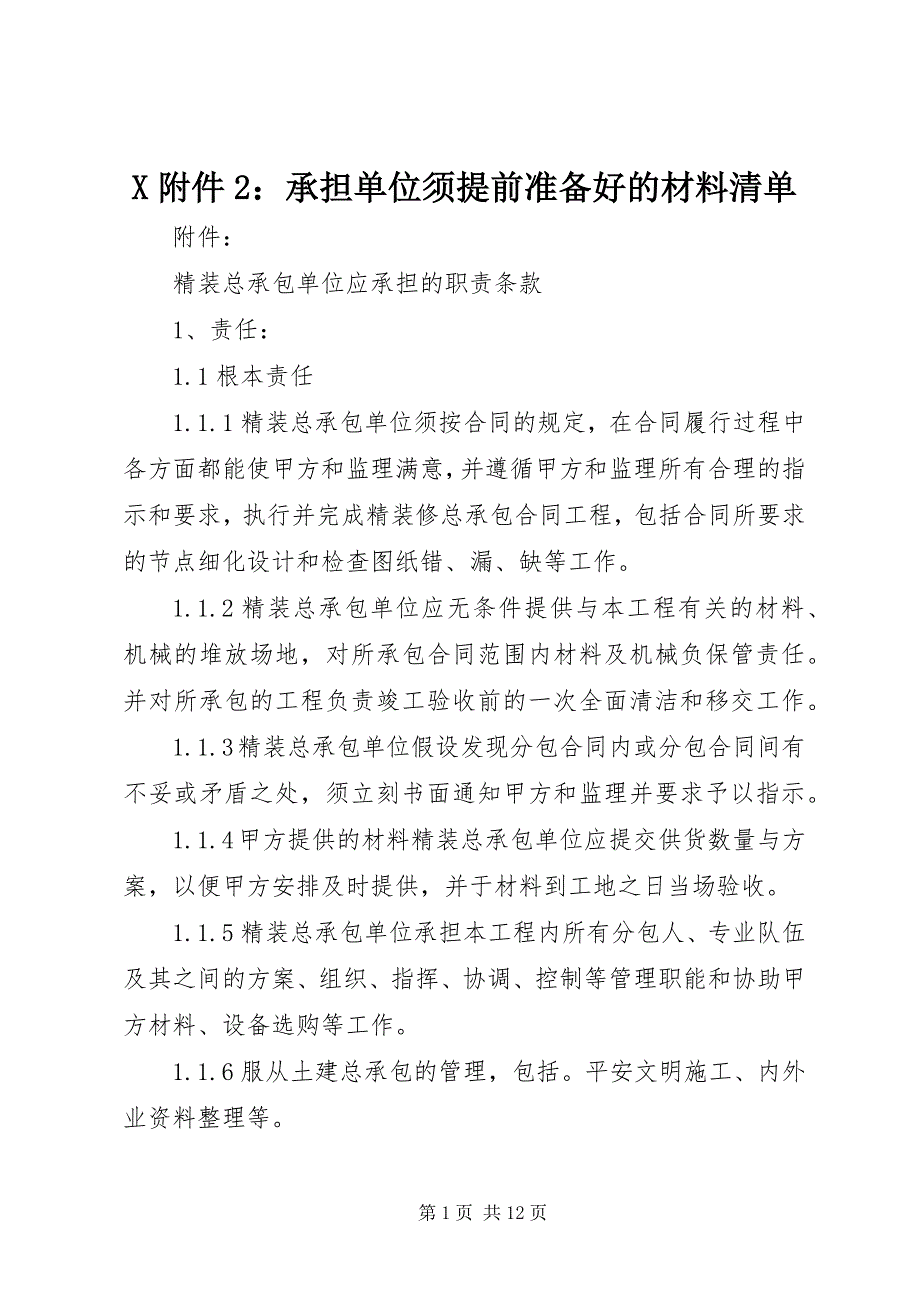 X 附件 2：承担单位须提前准备好的材料清单
附件：
精装总承包单位应承担的职责条款
1、责任：
1.1 根本责任
1.1.1 精装总承包单位须按合同的规定，在合同履行过程中
各方面都能使甲方和监理满意，并遵循甲方和监理所有合理的指
示和要求，执行并完成精装修总承包合同工程，包括合同所要求
的节点细化设计和检查图纸错、漏、缺等工作。
1.1.2 精装总承包单位应无条件提供与本工程有关的材料、
机械的堆放场地，对所承包合同范围内材料及机械负保管责任。
并对所承包的工程负责竣工验收前的一次全面清洁和移交工作。
1.1.3 精装总承包单位假设发现分包合同内或分包合同间有
不妥或矛盾之处，须立刻书面通知甲方和监理并要求予以指示。
1.1.4 甲方提供的材料精装总承包单位应提交供货数量与方
案，以便甲方安排及时提供，并于材料到工地之日当场验收。
1.1.5 精装总承包单位承担本工程内所有分包人、专业队伍
及其之间的方案、组织、指挥、协调、控制等管理职能和协助甲
方材料、设备选购等工作。
1.1.6 服从土建总承包的管理，包括。平安文明施工、内外
业资料整理等。
第 1 页 共 12 页